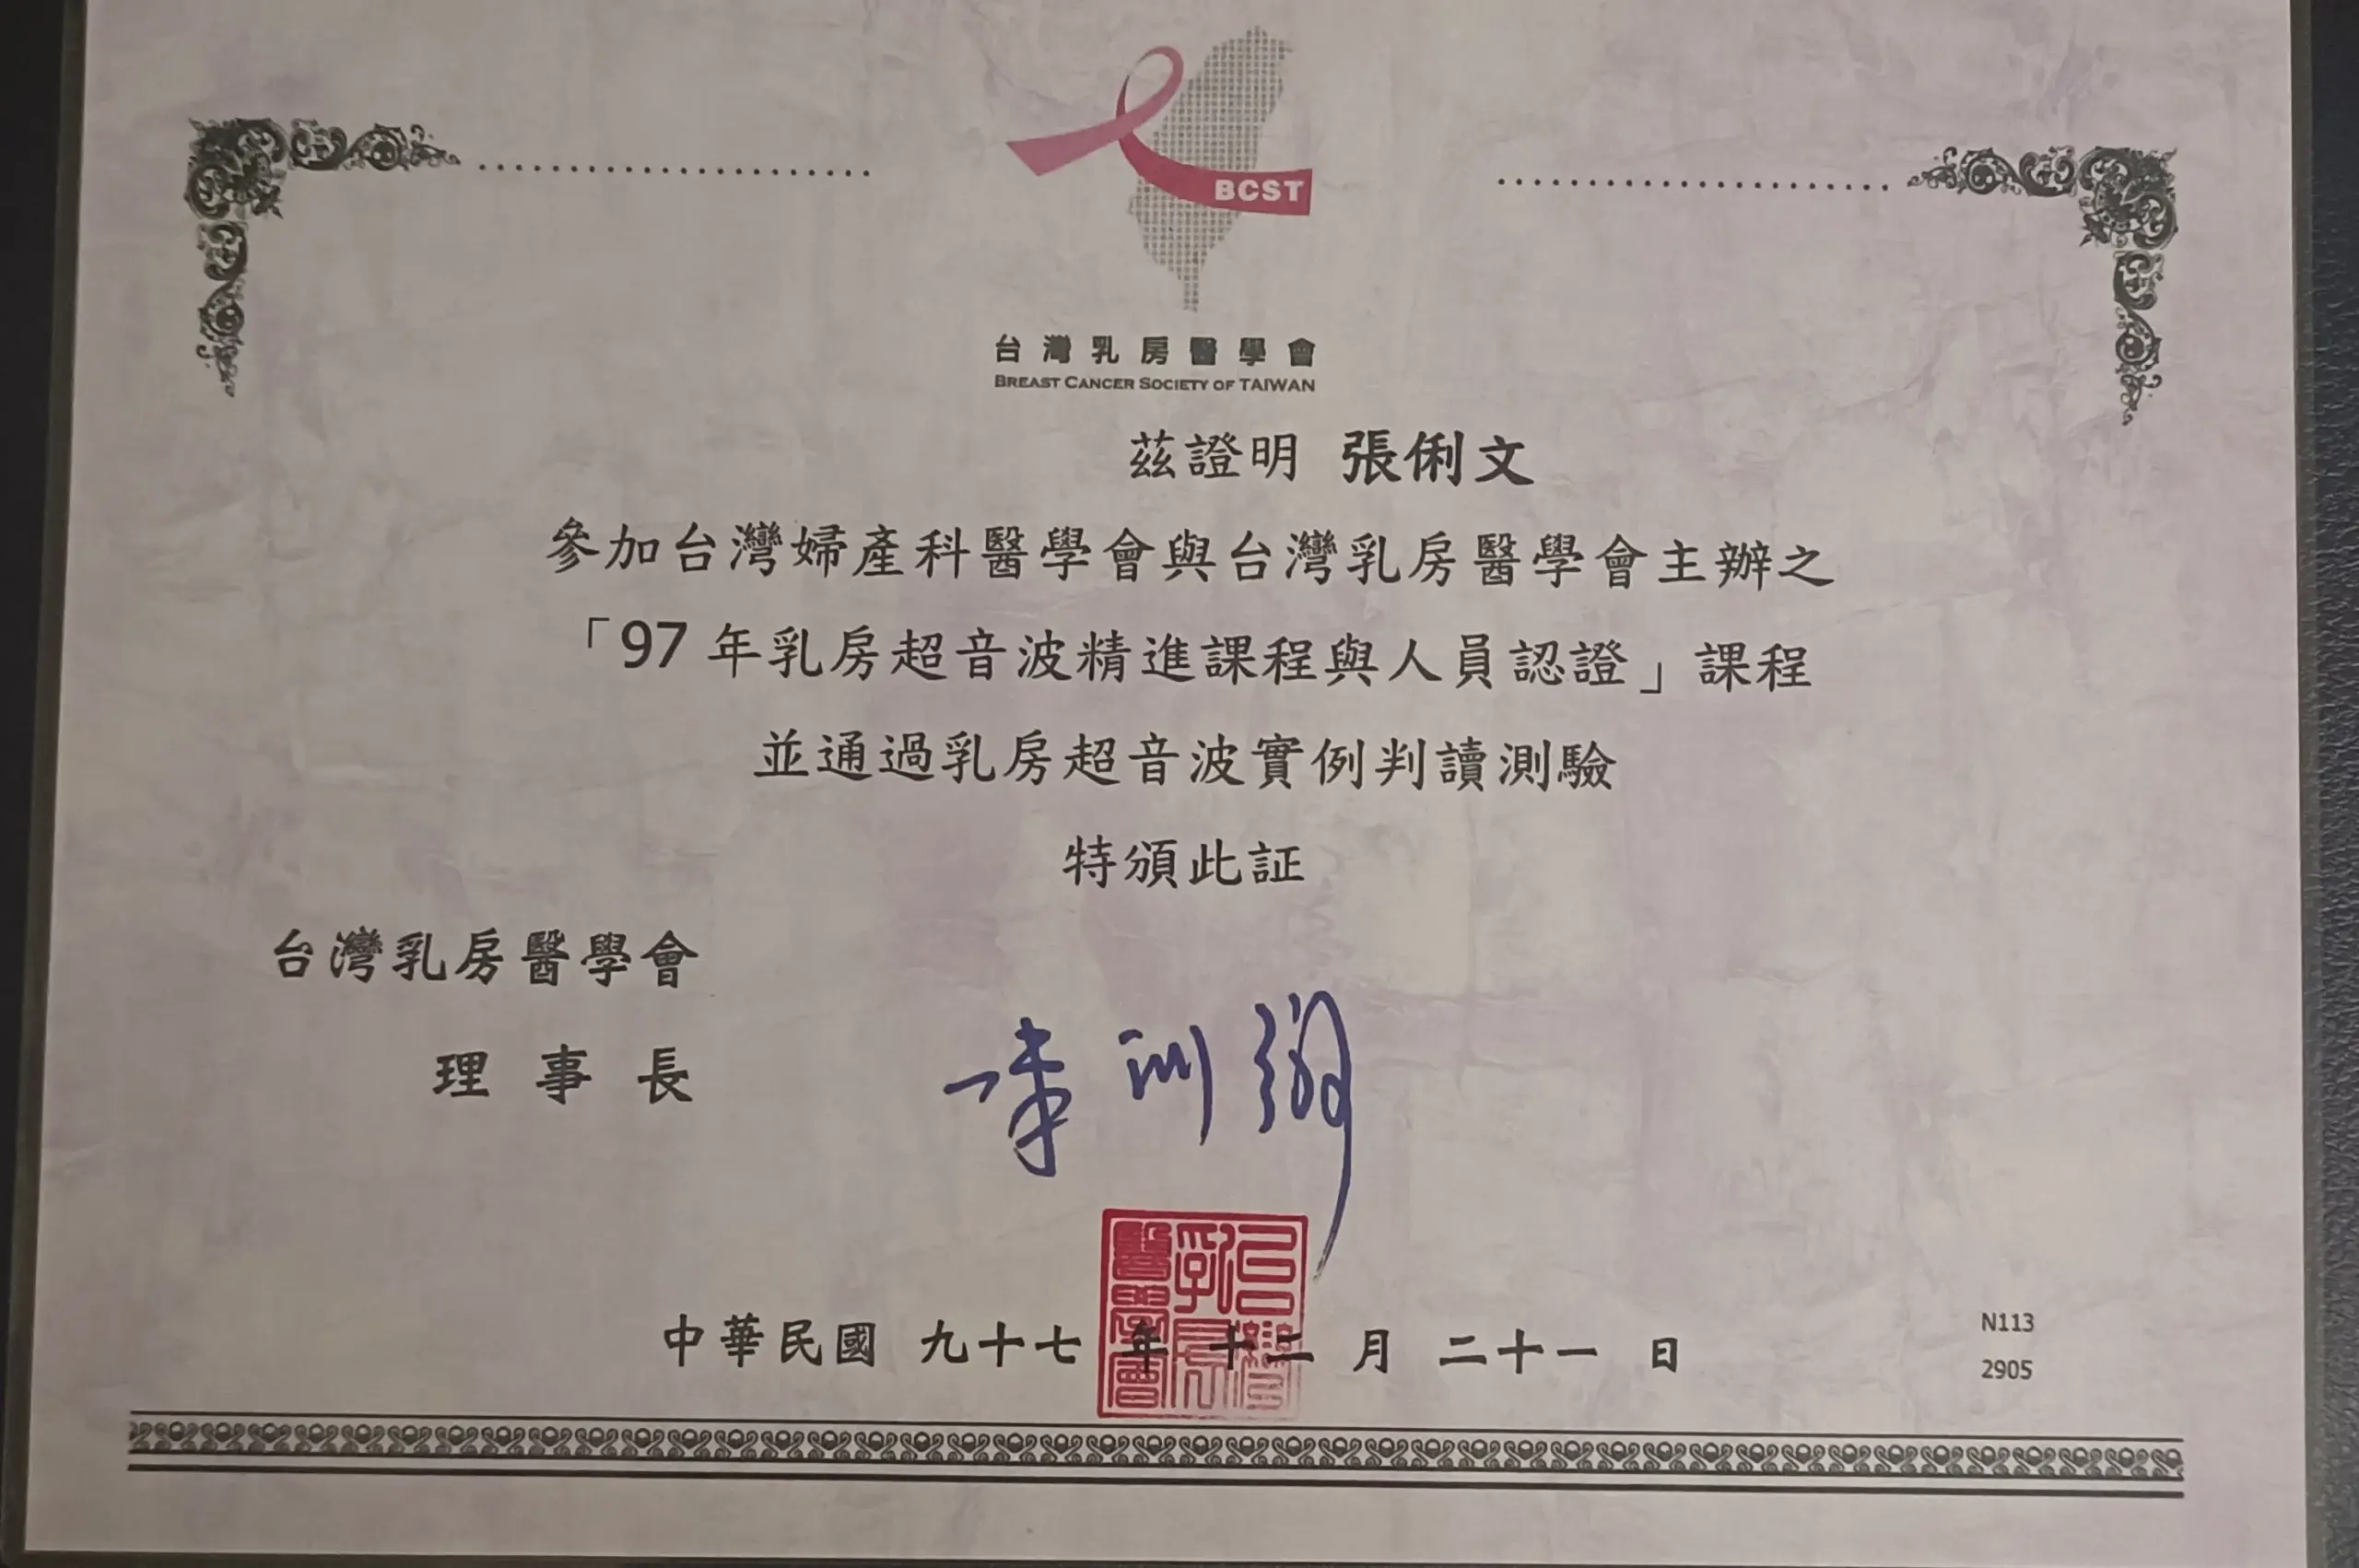 BCST
台灣乳房醫學會
BREAST CANCER SOCIETY OF TAIWAN
茲證明 張俐文
參加台灣婦產科醫學會與台灣乳房醫學會主辦之
「97年乳房超音波精進課程與人員認證」課程
並通過乳房超音波實例判讀測驗
特頒此証
台灣乳房醫學會
理事長
中華民國 九十七 年 十二 月 二十一 日
台灣乳房醫學會
N113
2905